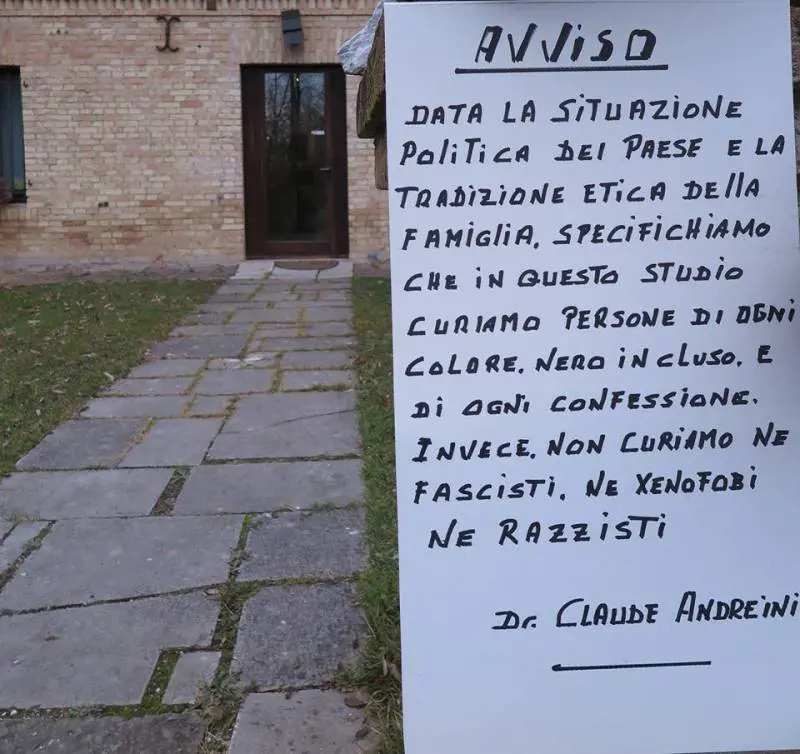 AVVISO
DATA LA SITUAZIONE
POLITICA DEL PAESE E LA
TRADIZIONE ETICA DELLA
FAMIGLIA, SPECIFICHIAMO
CHE IN QUESTO STUDIO
CURIAMO PERSONE DI OGNI
COLORE, NERO INCLUSO, E
DI OGNI CONFESSIONE.
INVECE, NON CURIAMO NE
FASCISTI, NE XENOFOBI
NE RAZZISTI
Dr. CLAUDE ANDREINI